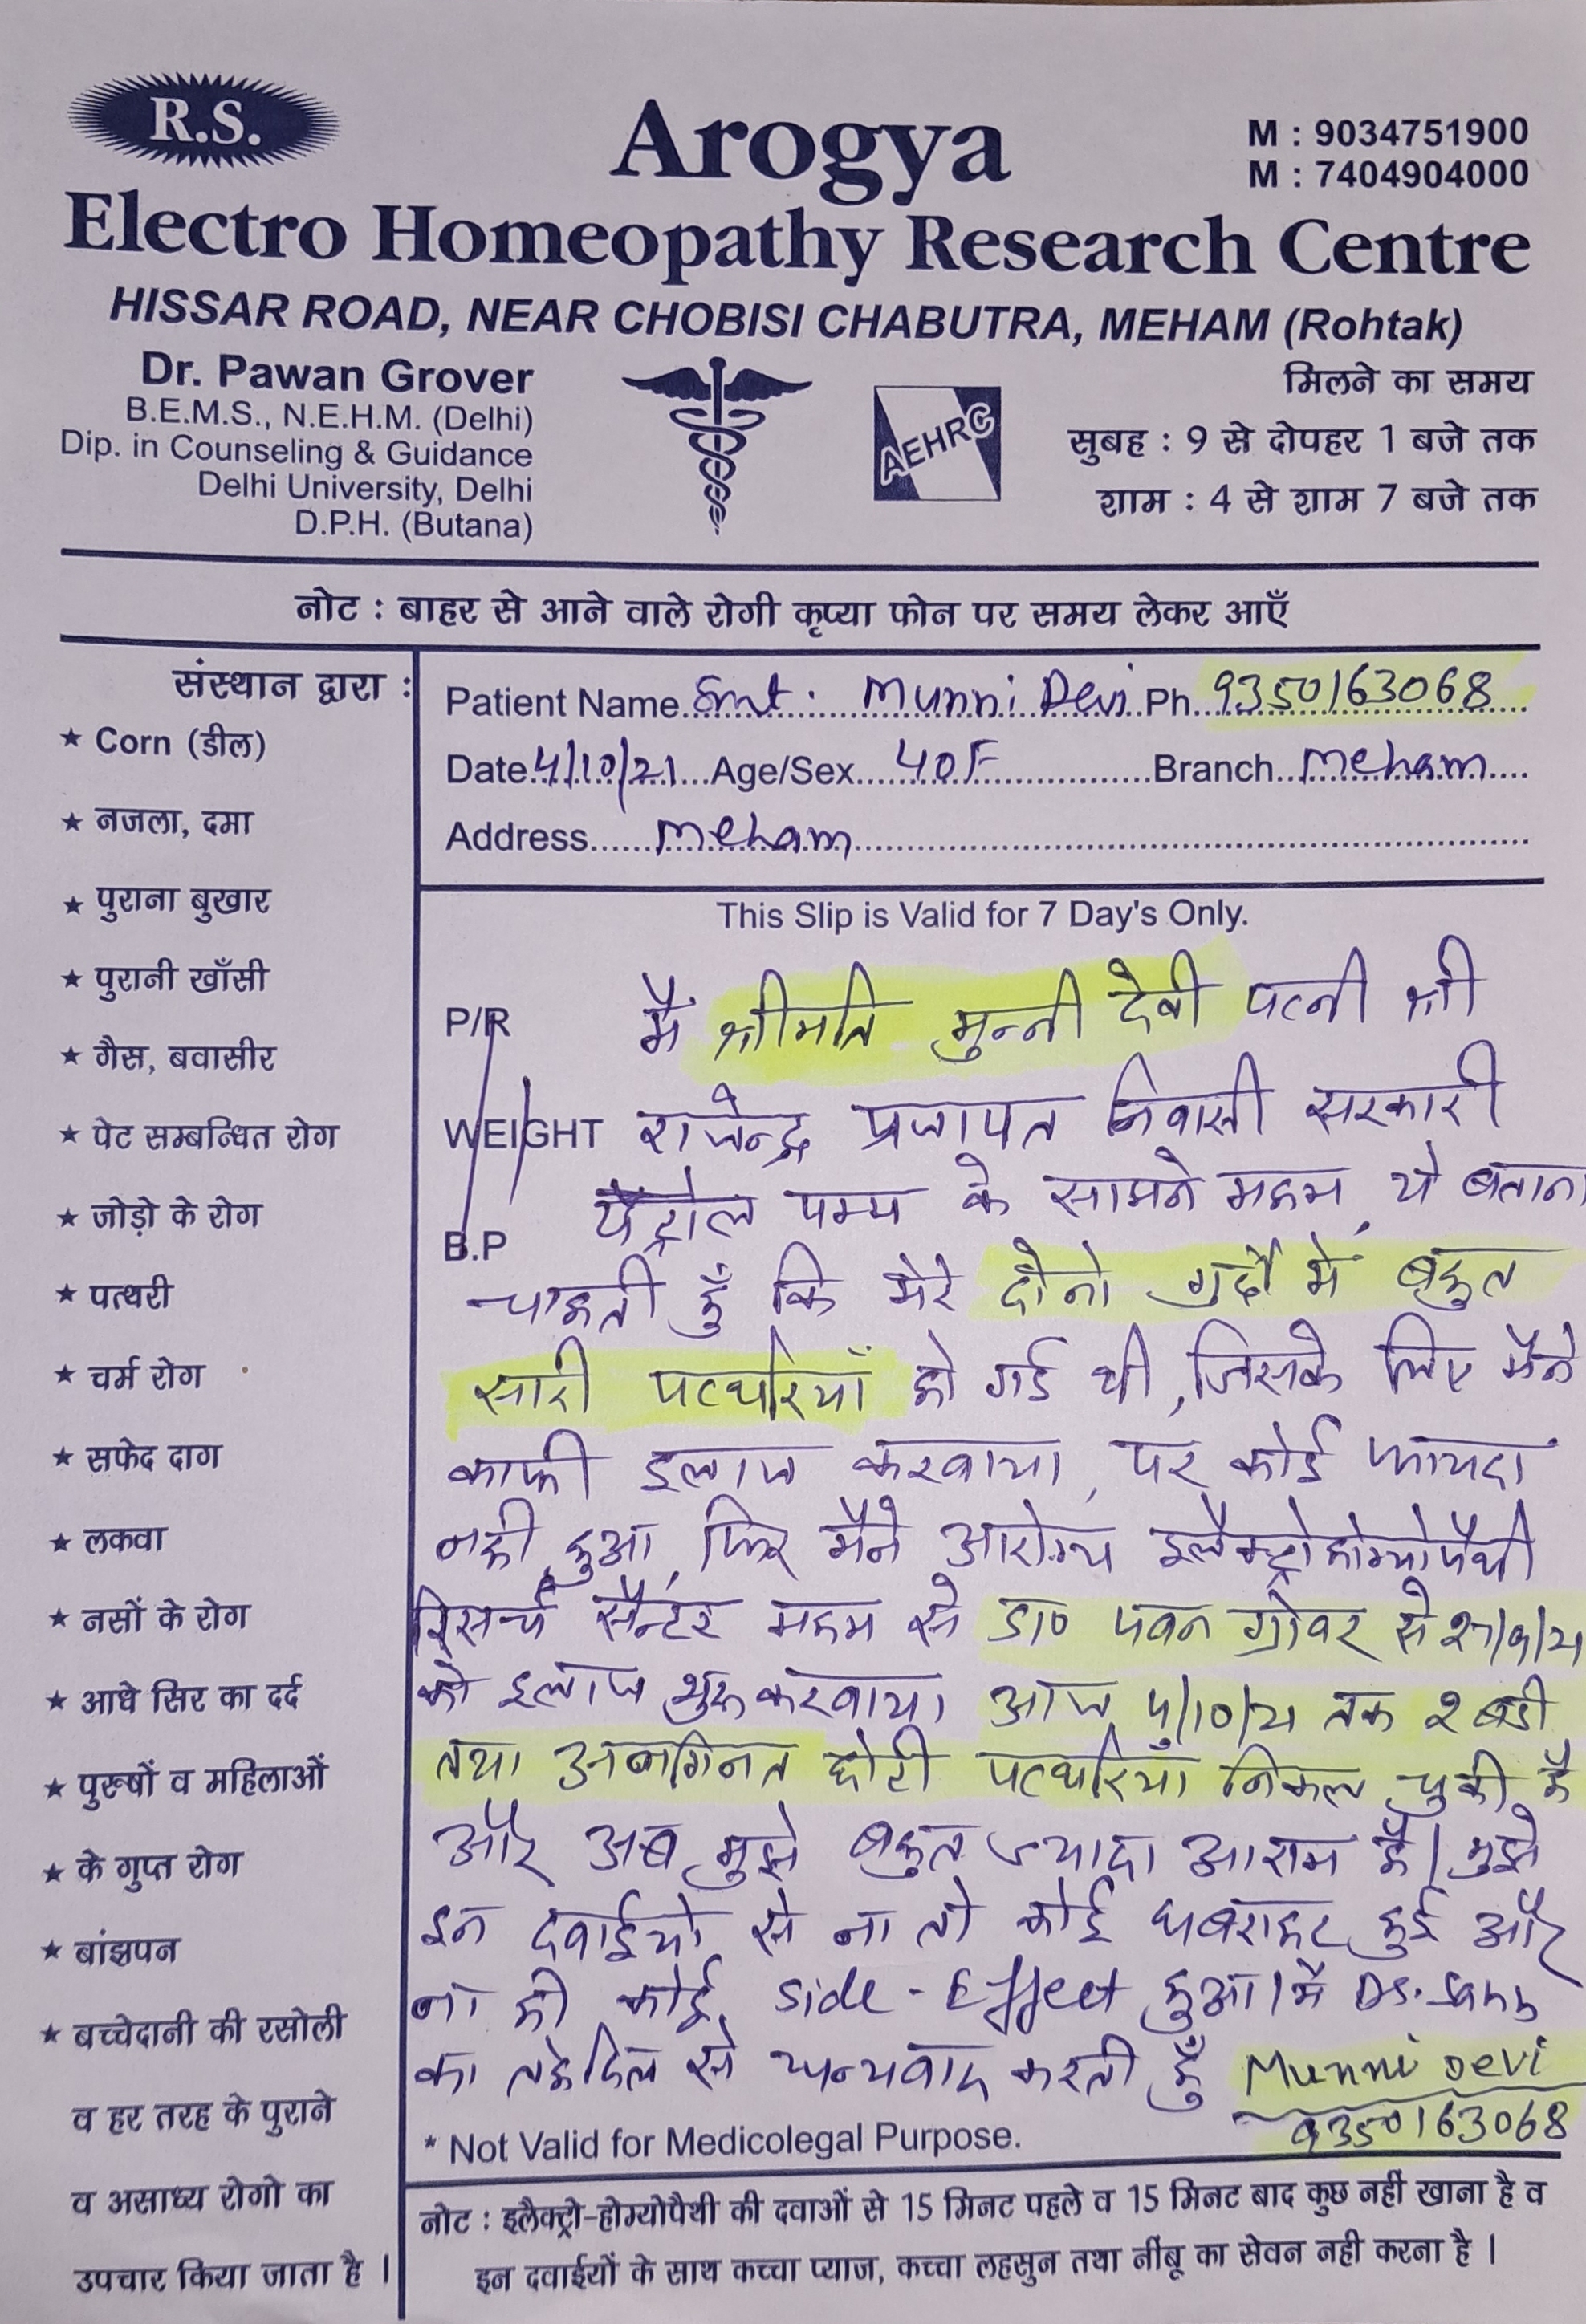 R.S.
Arogya
M : 9034751900
M : 7404904000
Electro Homeopathy Research Centre
HISSAR ROAD, NEAR CHOBISI CHABUTRA, MEHAM (Rohtak)
Dr. Pawan Grover
B.E.M.S., N.E.H.M. (Delhi)
Dip. in Counseling & Guidance
Delhi University, Delhi
D.P.H. (Butana)
AEHRC
मिलने का समय
सुबह : 9 से दोपहर 1 बजे तक
शाम : 4 से शाम 7 बजे तक
नोट : बाहर से आने वाले रोगी कृप्या फोन पर समय लेकर आएँ
संस्थान द्वारा :
★ Corn (डील)
★ नजला, दमा
★ पुराना बुखार
★ पुरानी खाँसी
★ गैस, बवासीर
★ पेट सम्बन्धित रोग
★ जोड़ो के रोग
★ पत्थरी
★ चर्म रोग
★ सफेद दाग
★ लकवा
★ नसों के रोग
★ आधे सिर का दर्द
★ पुरूषों व महिलाओं
★ के गुप्त रोग
★ बांझपन
★ बच्चेदानी की रसोली
व हर तरह के पुराने
व असाध्य रोगो का
उपचार किया जाता है ।
Patient Name Smt. Munni Devi Ph. 9350163068
Date 4/10/21 Age/Sex 40F Branch Meham
Address Meham
This Slip is Valid for 7 Day's Only.
P/R
WEIGHT
B.P
मैं श्रीमति मुन्नी देवी पत्नी श्री
राजेन्द्र प्रजापत निवासी सरकारी
पैट्रोल पम्प के सामने महम, ये बताना
चाहती हूँ कि मेरे दोनो गुर्दो मे बहुत
सारी पत्थरियाँ हो गई थी, जिसके लिए मैने
काफी इलाज करवाया, पर कोई फायदा
नही हुआ, फिर मैने आरोग्य इलैक्ट्रोहोम्योपैथी
रिसर्च सैन्टर महम से डा० पवन ग्रोवर से
को इलाज शुरू करवाया आज 4/10/21 तक 2 बडी
तथा अनगिनत छोटी पत्थरियाँ निकल चुकी है
और अब मुझे बहुत ज्यादा आराम है। मुझे
इन दवाईयो से ना तो कोई घबराहट हुई और
ना ही कोई side-Effect हुआ। मै Dr. Sahb
का तहेदिल से धन्यवाद करती हूँ
Munni Devi
9350163068
* Not Valid for Medicolegal Purpose.
नोट : इलैक्ट्रो-होम्योपैथी की दवाओं से 15 मिनट पहले व 15 मिनट बाद कुछ नही खाना है व
इन दवाईयों के साथ कच्चा प्याज, कच्चा लहसुन तथा नींबू का सेवन नही करना है ।